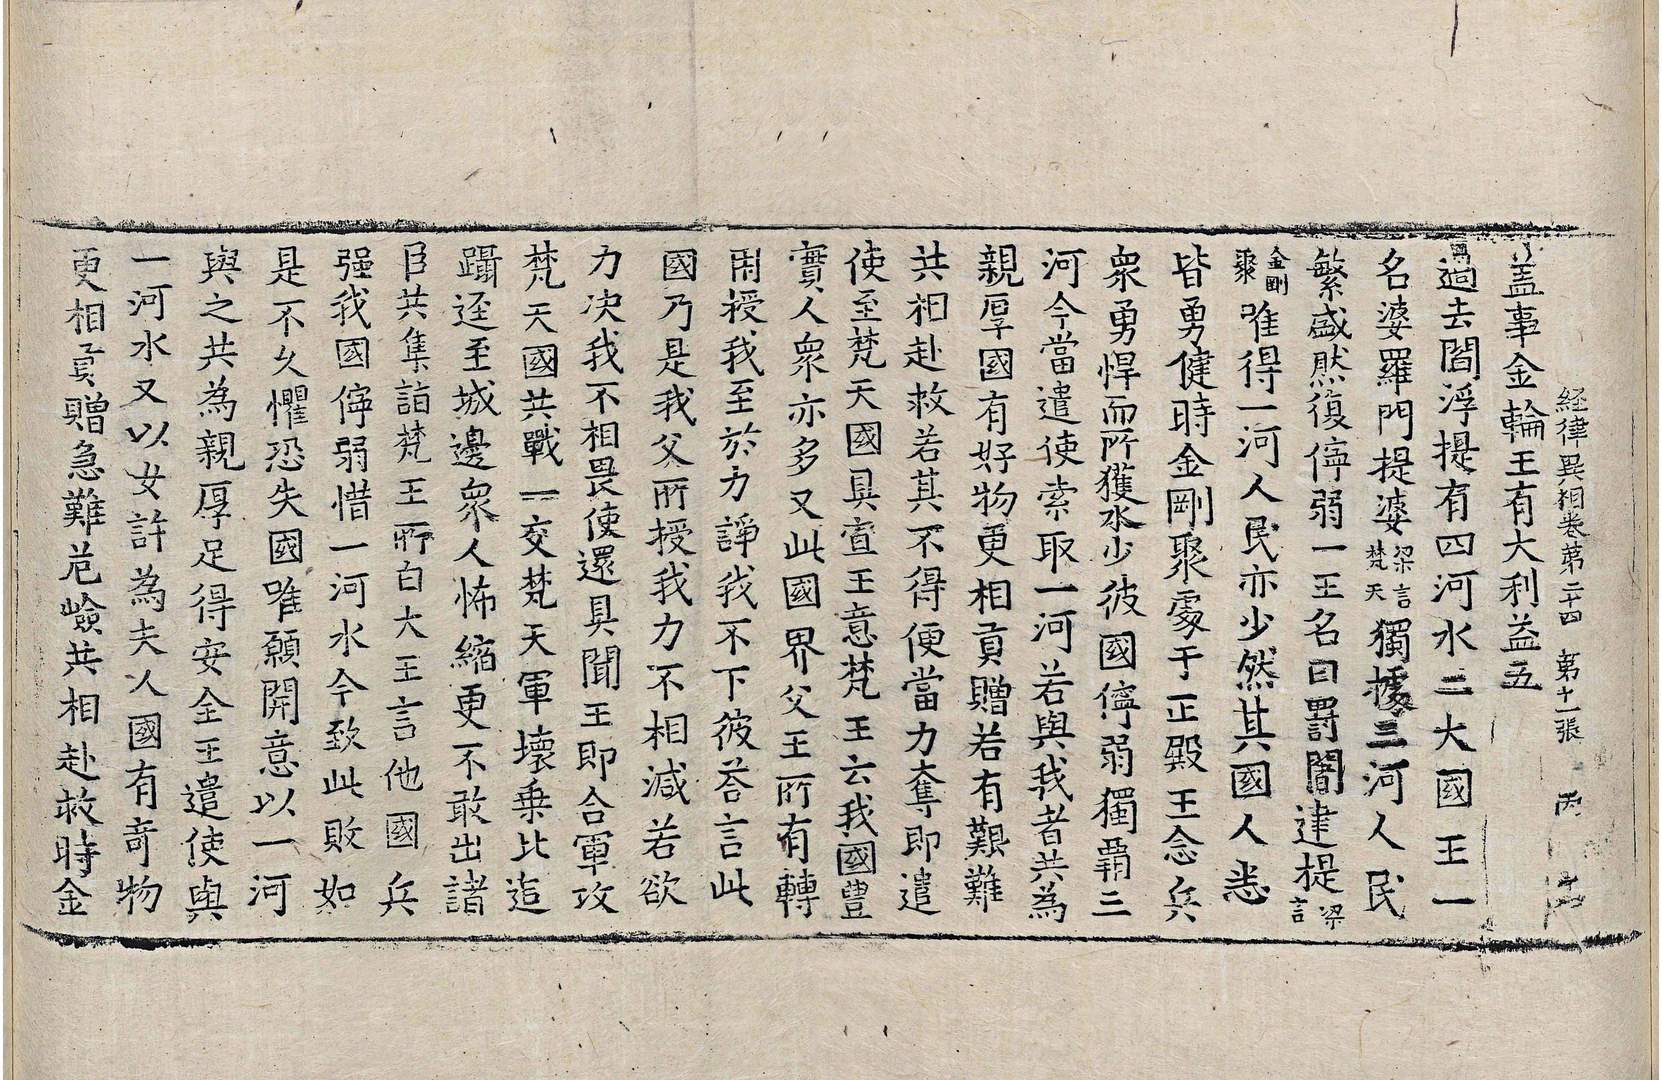 経律異相卷第二十四 第十一張 丙
盖事金輪王有大利益五
過去閻浮提有四河水二大國王一
名婆羅門提婆梁言梵天獨據三河人民
繁盛然復儜弱一王名曰罰闍建提梁言
金剛聚唯得一河人民亦少然其國人悉
皆勇健時金剛聚處于正殿王念兵
衆勇悍而所獲水少彼國儜弱獨覇三
河今當遣使索取一河若與我者共為
親厚國有好物更相貢贈若有艱難
共相赴救若其不得便當力奪即遣
使至梵天國具宣王意梵王云我國豊
實人衆亦多又此國界父王所有轉
用授我至於力諍我不下彼荅言此
國乃是我父所授我力不相減若欲
力决我不相畏使還具聞王即合軍攻
梵天國共戰一交梵天軍壞乗比追
躡逕至城邊衆人怖縮更不敢出諸
臣共集詣梵王所白大王言他國兵
强我國儜弱惜一河水今致此敗如
是不久懼恐失國唯願開意以一河
與之共為親厚足得安全王遣使與
一河水又以女許為夫人國有竒物
更相貢贈急難危嶮共相赴救時金